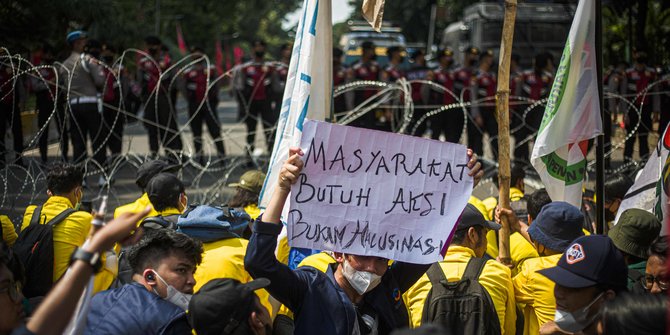 MASYARAKAT
BUTUH AKSI
BUKAN HALUSINASI